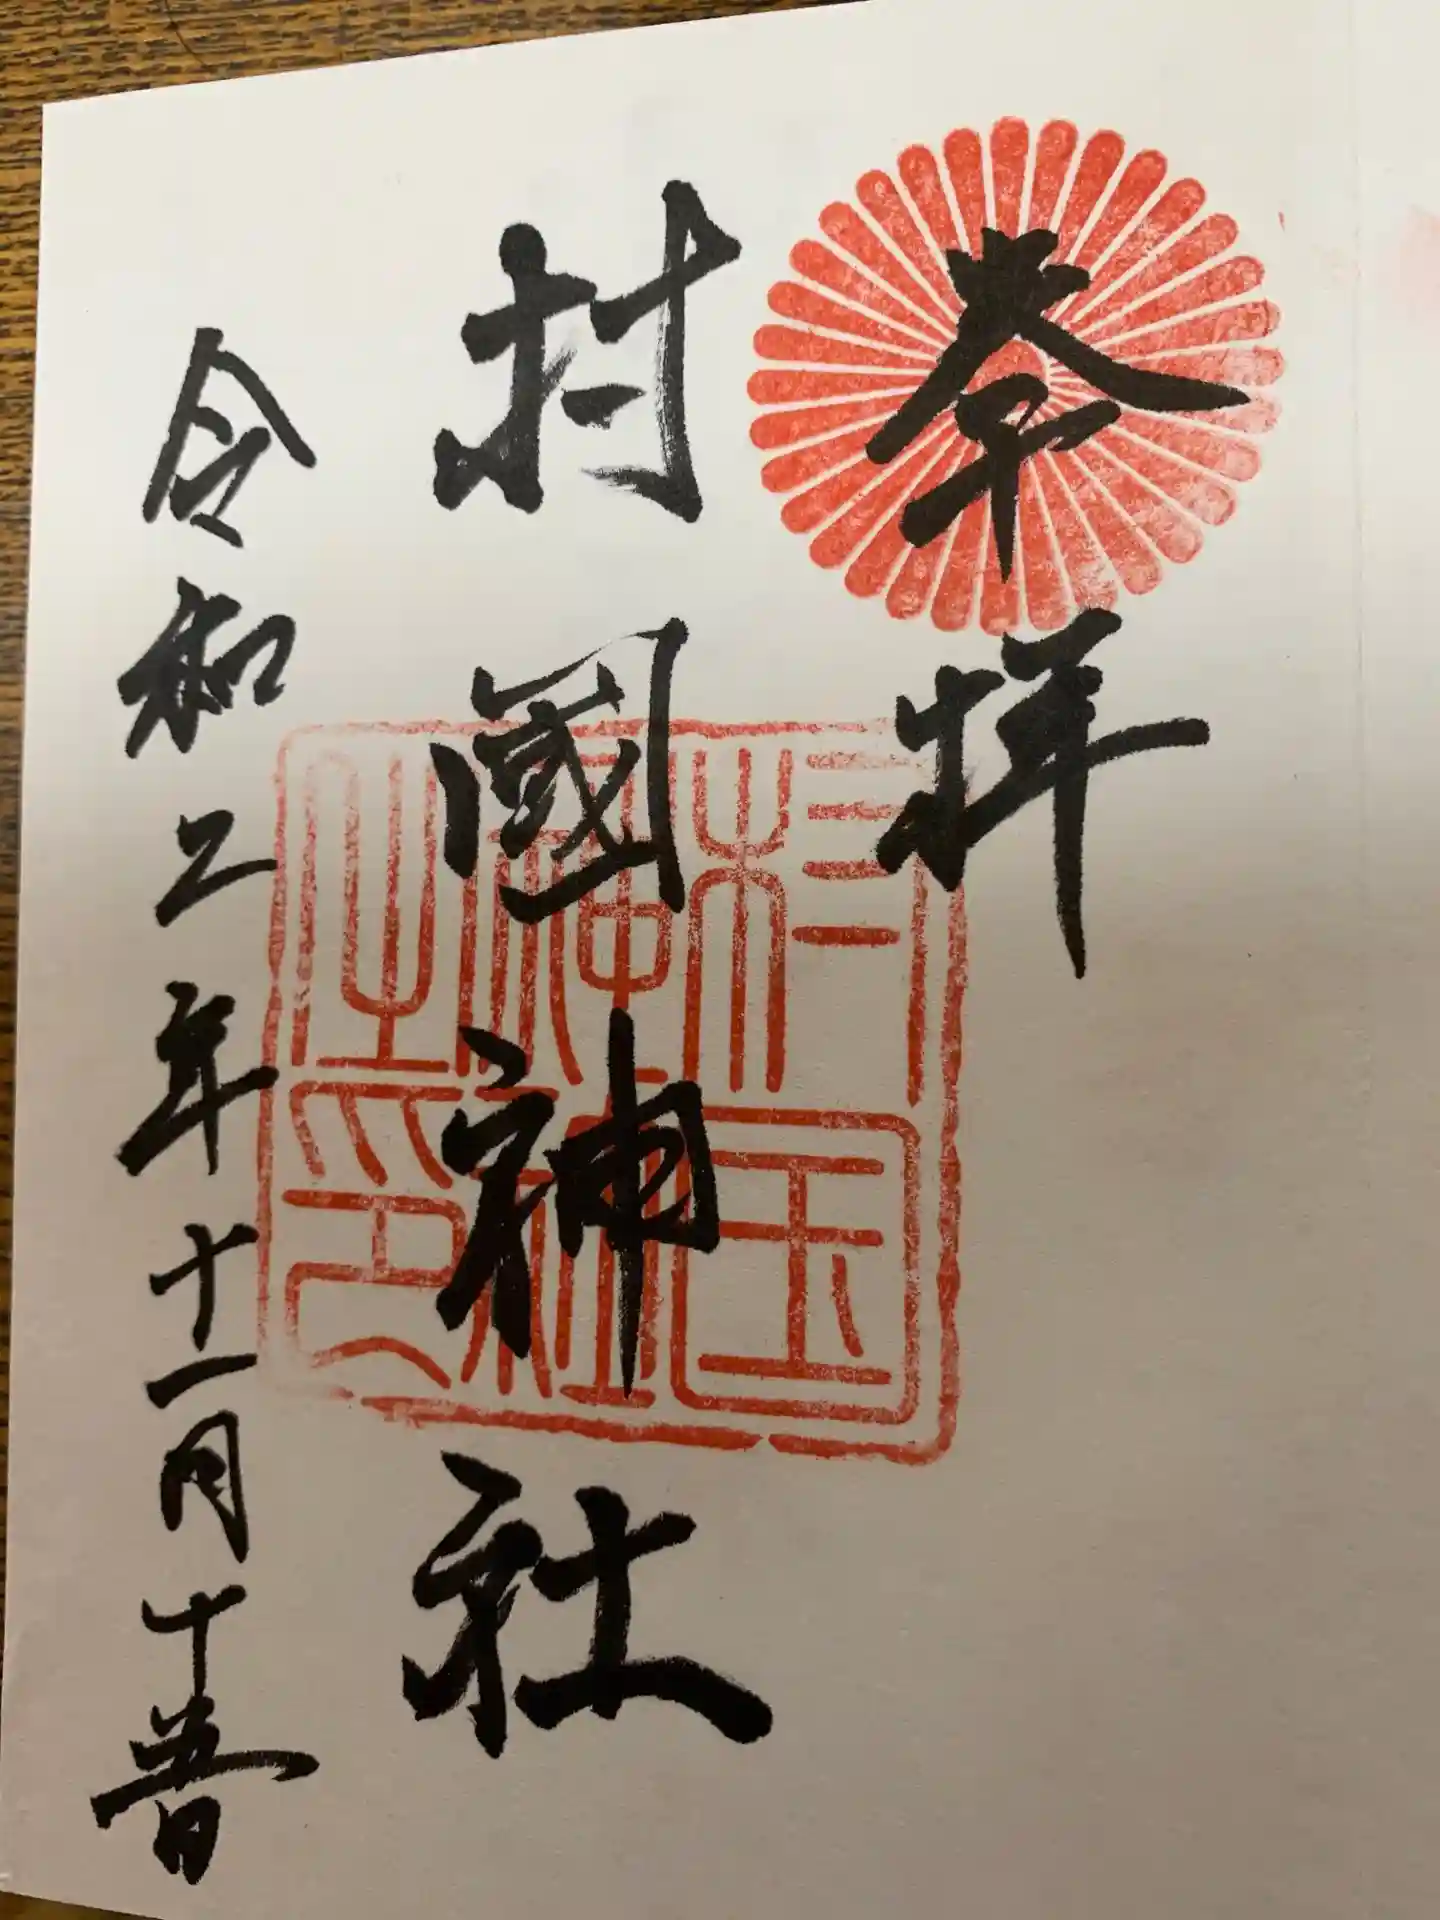 奉拝
村國神社
令和二年十一月十五日
村国
神社
之印